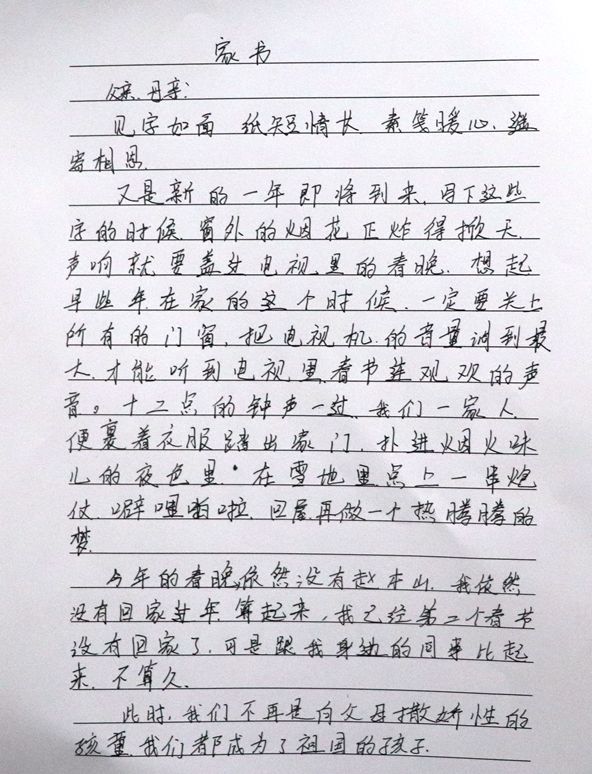 家书
父亲、母亲:
见字如面 纸短情长 素笺暖心、遥
寄相思.
又是新的一年即将到来.写下这些
字的时候 窗外的烟花正炸得掀天.
声响就要盖过电视里的春晚. 想起
早些年在家的这个时候.一定要关上
所有的门窗.把电视机的音量调到最
大.才能听到电视里春节联欢的声
音。十二点的钟声一过.我们一家人
便裹着衣服踏出家门.扑进烟火味
儿的夜色里.在雪地里点上一串炮
仗.噼哩啪啦.回屋再做一个热腾腾的
梦
今年的春晚依然没有赵本山.我依然
没有回家过年.算起来,我已经第二个春节
没有回家了.可是跟我身边的同事比起
来.不算久.
此时,我们不再是向父母撒娇性的
孩童.我们都成为了祖国的孩子.